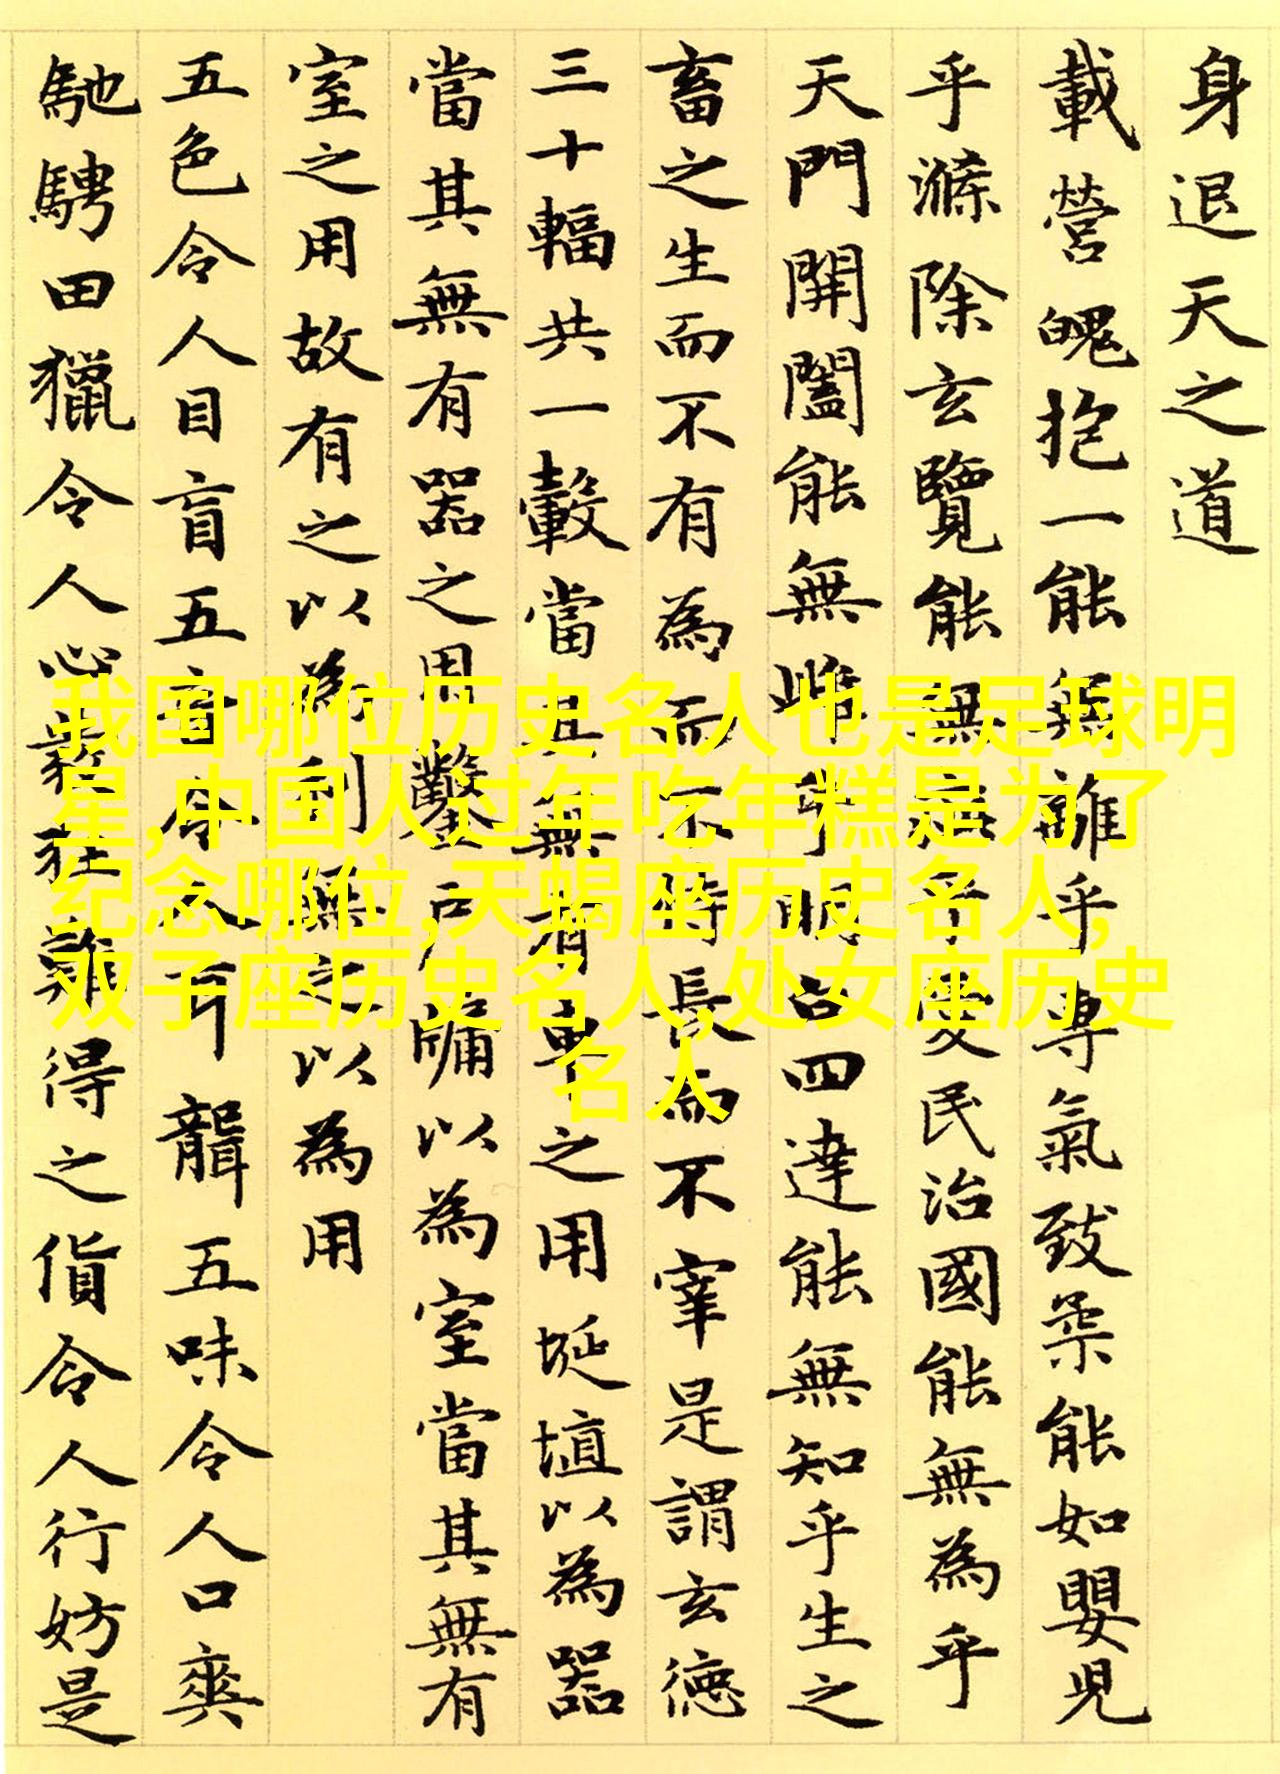 身退天之道
載營魄抱一能無離乎專氣致柔能如嬰兒
乎滌除玄覽能無疵乎愛民治國能無為乎
天門開闔能無雌乎明白四達能無知乎生之
畜之生而不有為而不恃長而不宰是謂玄德
三十輻共一轂當其無有車之用埏埴以為器
當其無有器之用鑿戶牖以為室當其無有
室之用故有之以為利無之以為用
五色令人目盲五音令人耳聾五味令人口爽
馳騁田獵令人心發狂難得之貨令人行妨是
我国哪位历史名人也是足球明
星,中国人过年吃年糕是为了
纪念哪位,天蝎座历史名人,
双子座历史名人,处女座历史
名人